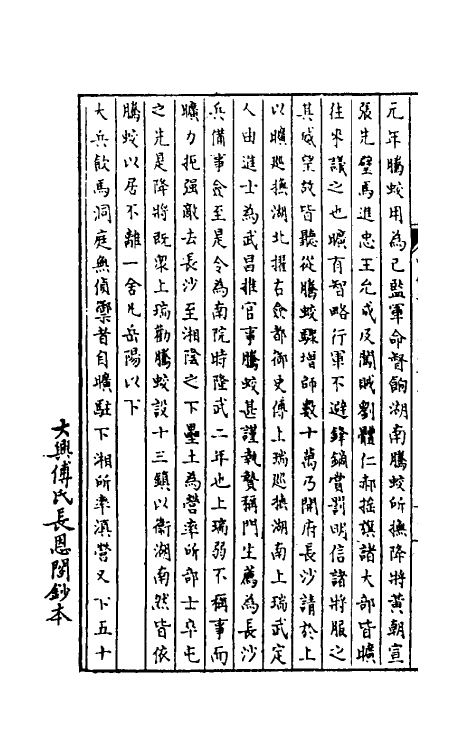 元年騰蛟用為己監軍命督餉湖南騰蛟所撫降將黃朝宣
張先璧馬進忠王允成及闖賊劉體仁郝搖旗諸大部皆曠
往來議之也曠有智略行軍不避鋒鏑賞罰明信諸將服之
其威望故皆聽從騰蛟驟增師數十萬乃開府長沙請於上
以曠巡撫湖北擢右僉都御史傅上瑞巡撫湖南上瑞武定
人由進士為武昌推官事騰蛟甚謹執贄稱門生薦為長沙
兵備事僉至是令為南院時隆武二年也上瑞弱不稱事而
曠力扼强敵去長沙至湘陰之下壘土為營率所部士卒屯
之先是降將既眾上瑞勸騰蛟設十三鎮以衞湖南然皆依
騰蛟以居不離一舍凡岳陽以下
大兵飲馬洞庭無偵禦者自曠駐下湘所率滇營又下五十
大興傅氏長恩閣鈔本